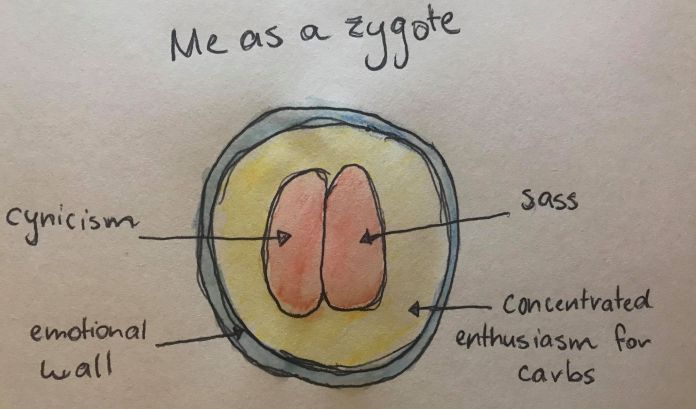 Me as a zygote
cynicism
sass
emotional
wall
concentrated
enthusiasm for
carbs